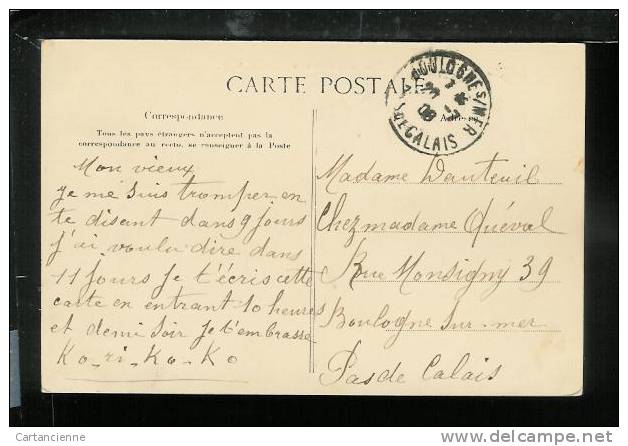 CARTE POSTALE
BOULOGNE S/MER
Pas DE CALAIS
Correspondance
Adresse
Tous les pays étrangers n'acceptent pas la
correspondance au recto, se renseigner à la Poste
Mon vieux
je me suis tromper en
te disant dans 9 jours
j'ai voulu dire dans
11 jours je t'écris cette
carte en entrant 10 heures
et demi soir je t'embrasse
Ko-ri-Ko-Ko
Madame Dauteuil
Chez madame Quéval
Rue Monsigny 39
Boulogne sur-mer
Pas de Calais
Cartancienne
delcampe.net